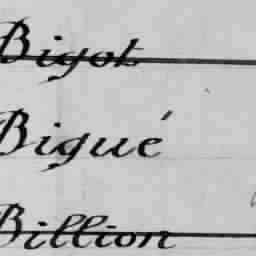 Bigot
Bigué
Billion